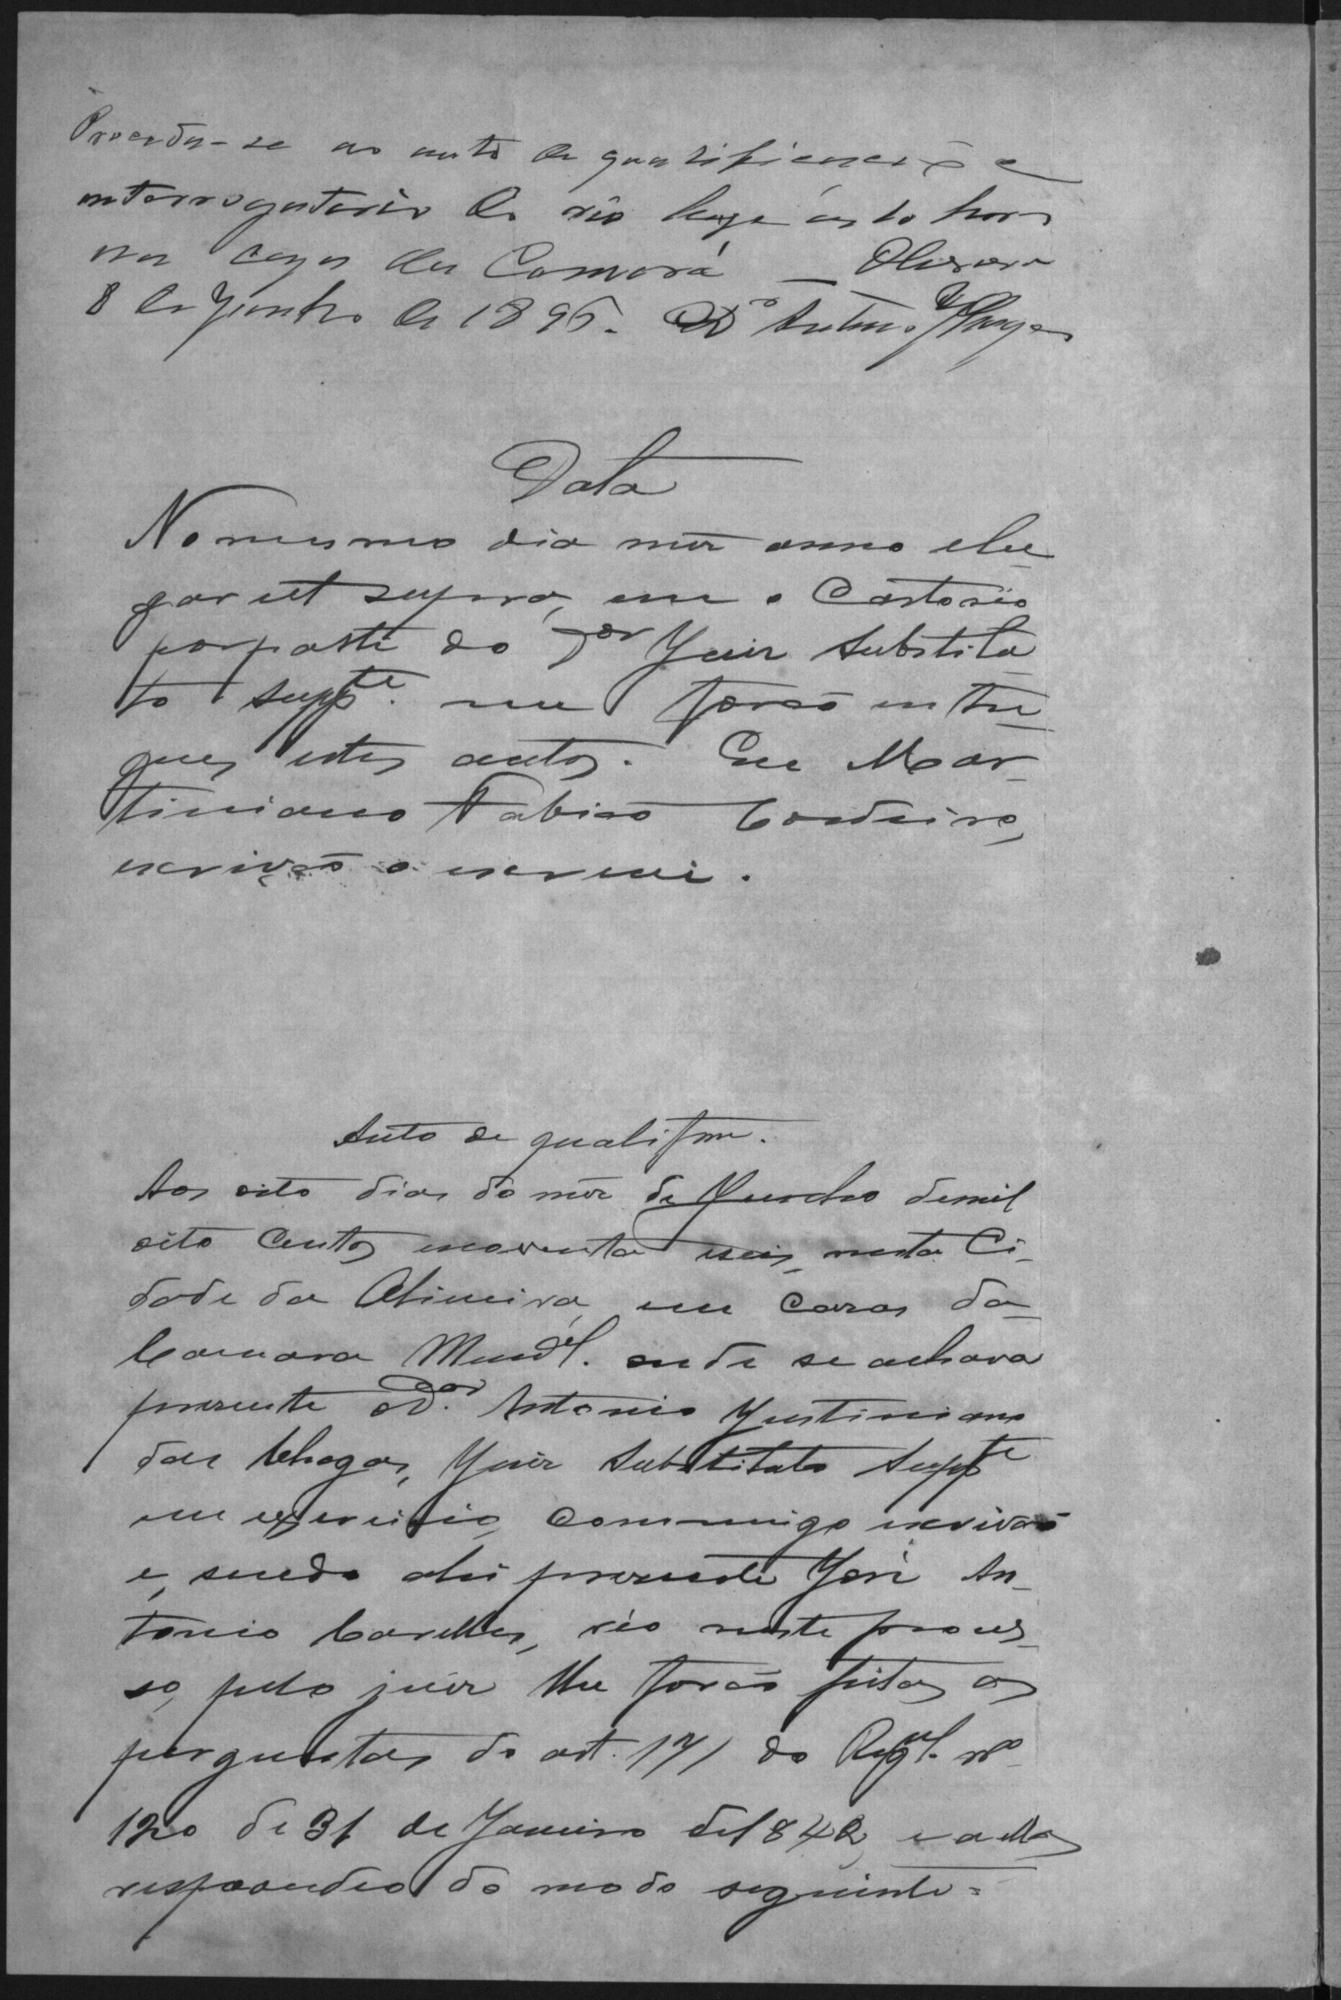 Proceda-se ao auto de qualificação e
interrogatorio do réo hoje ás 10 horas
na caza da Camará — Oliveira
8 de Junho de 1896. D.º Antº J Chagas
Data
No mesmo dia mez anno elu
gar ut supra, em o Cartorio
por parte do Dor Juiz Substitu
to Suppte. me forão entre
gues estes autos. Eu Mar
tiniano Fabião Cordeiro,
escrivão o escrevi.
Auto de qualifam.
Aos oito dias do mez de Junho demil
oito centos enoventa eseis, nesta Ci-
dade da Oliveira, em casas da
Camara Munal. onde se achava
presente o Dor. Antonio Justiniano
das Chagas, Juiz Substituto Suppte
em exercicio, commigo escrivão
e, sendo ahi presente José An-
tonio Carelles, réo neste proces-
so, pelo juiz lhe forão feitas as
perguntas do art. 171 do Regul. nº
120 de 31 de Janeiro de 1842, e a ellas
respondeo do modo seguinte: